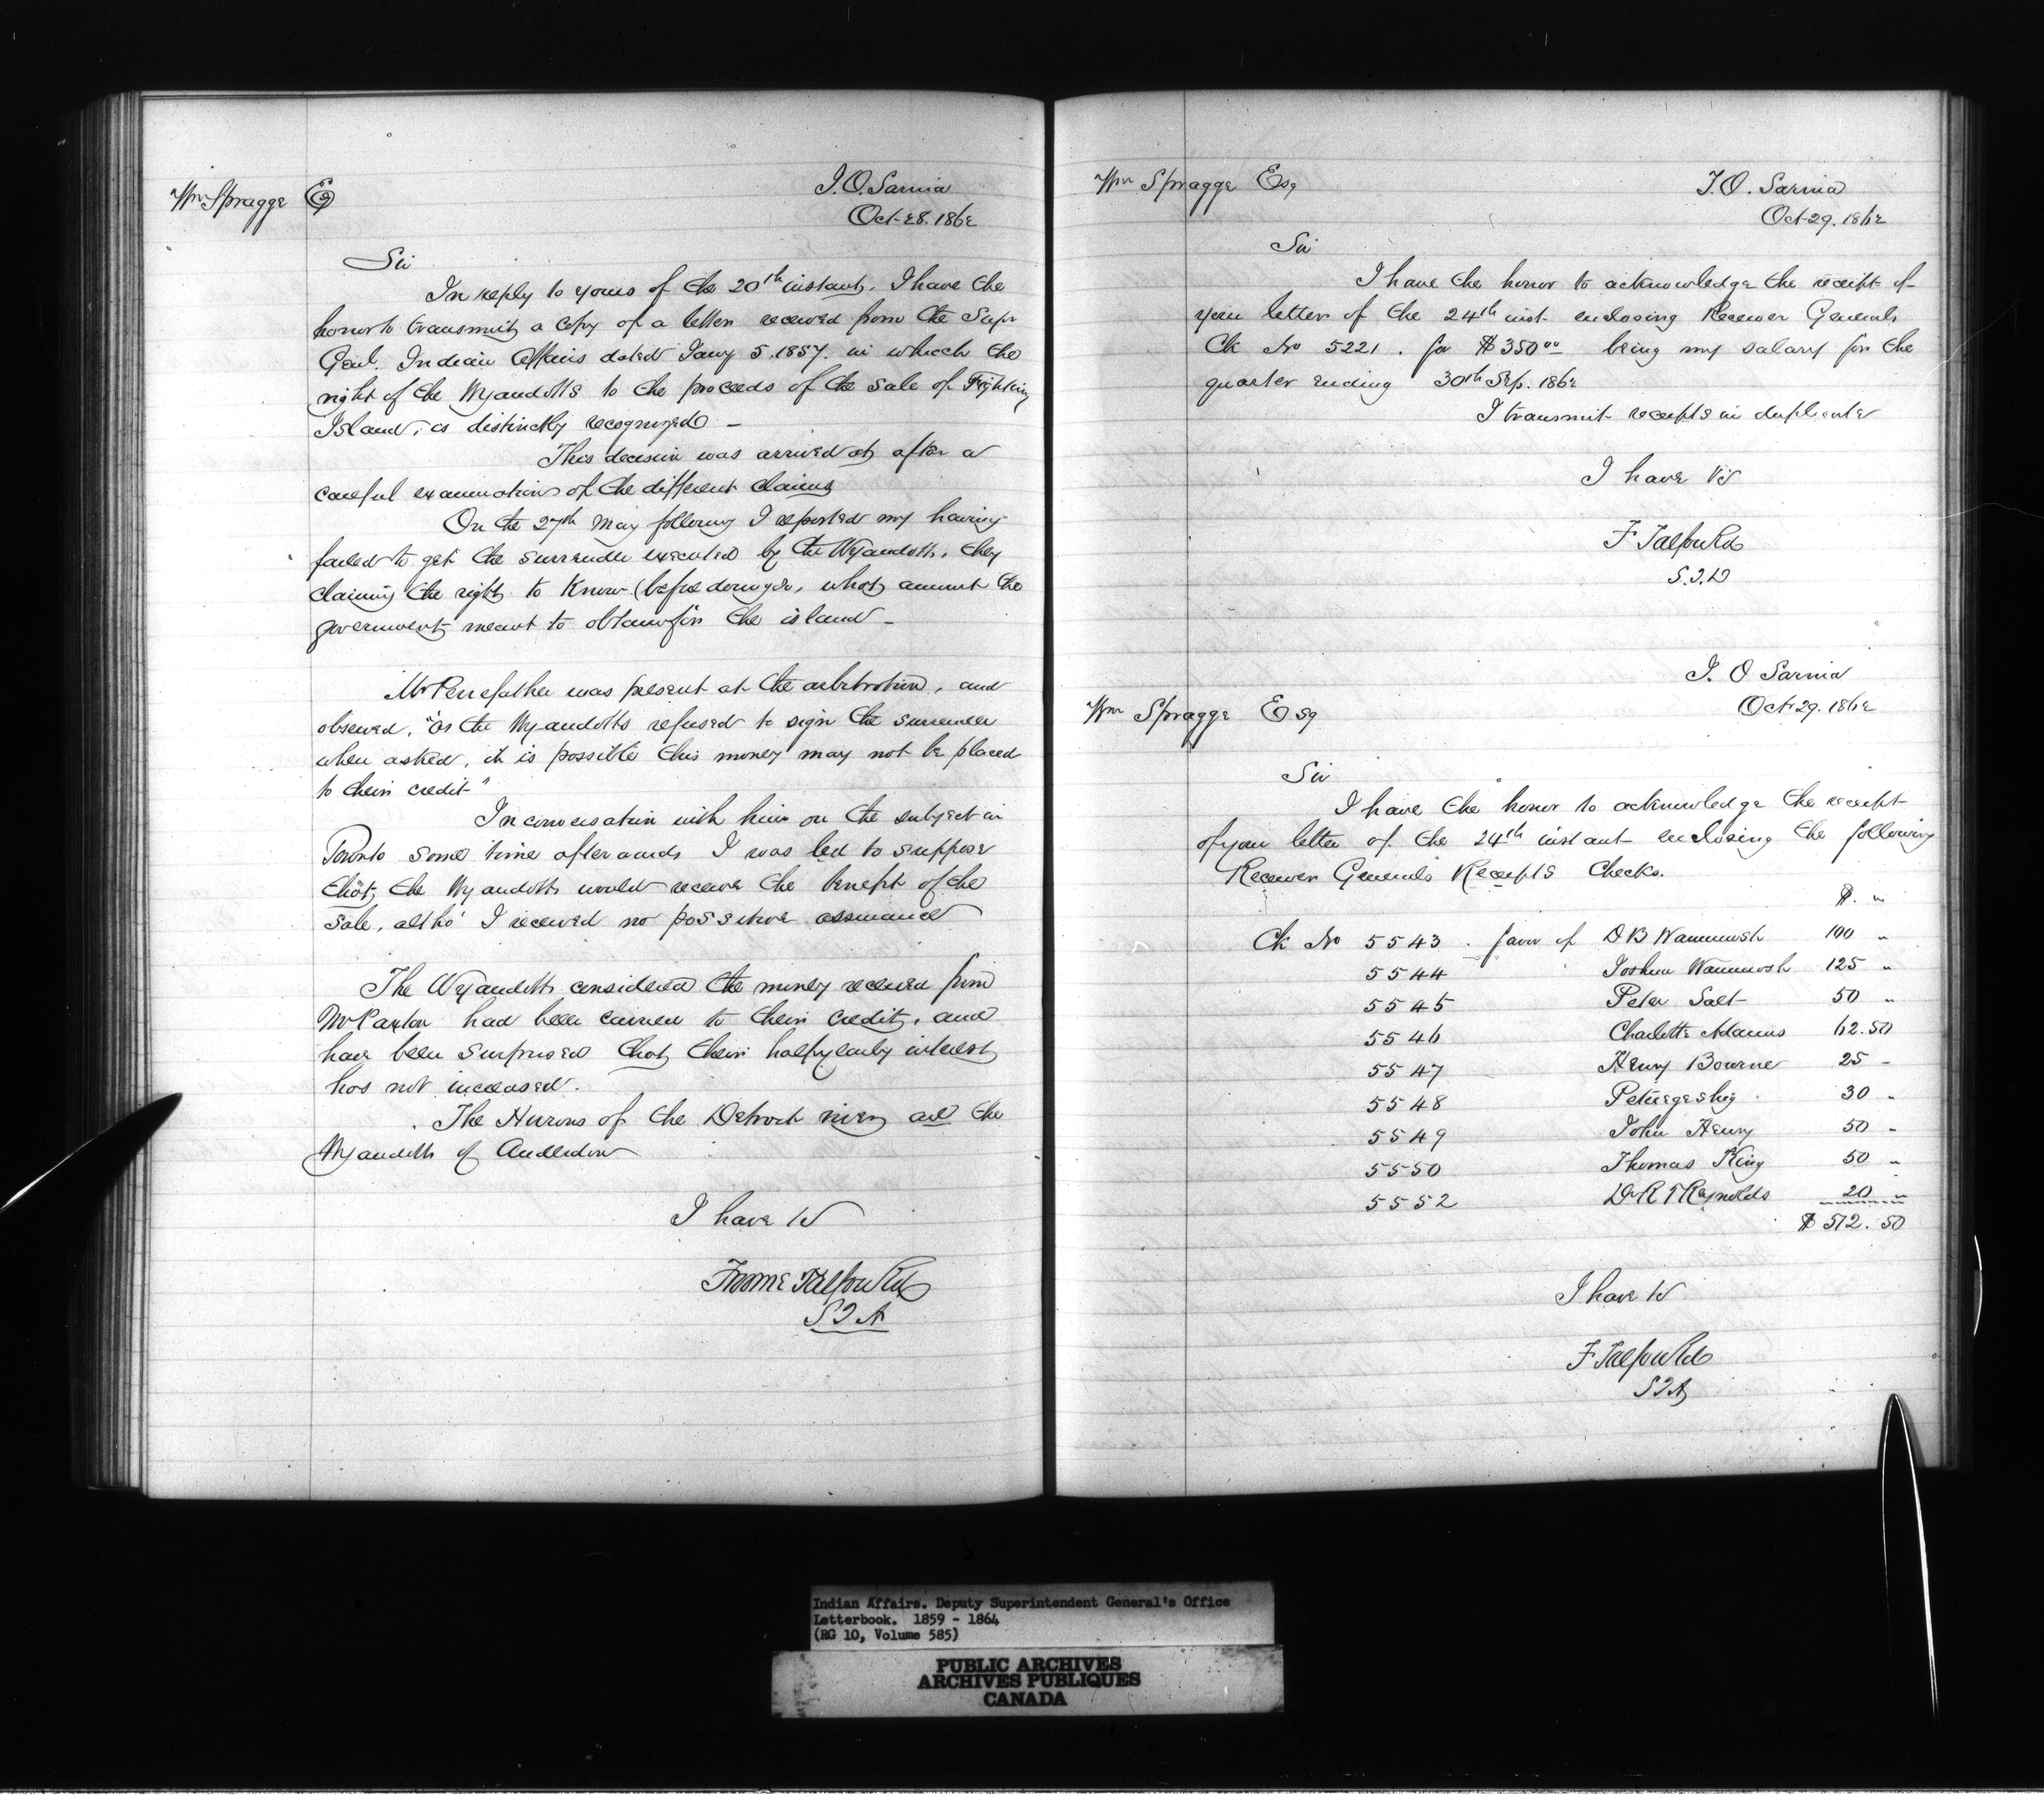 Wm Spragge Esq
I. O. Sarnia
Oct 28. 1862
Sir
In reply to yours of the 20th instant, I have the
honor to transmit a copy of a letter received from the Supr
Genl. Indian Affairs dated Jany 5. 1857. in which the
right of the Wyandotts to the proceeds of the sale of Fighting
Island, is distinctly recognized —
This decision was arrived at after a
careful examination of the different claims
On the 27th May following I reported my having
failed to get the surrender executed by the Wyandotts, they
claiming the right to know (before doing so, what amount the
government meant to obtain for the island —
Mr Pennefather was present at the arbitration, and
observed, "as the Wyandotts refused to sign the surrender
when asked, it is possible this money may not be placed
to their credit"
In conversation with him on the subject in
Toronto some time afterwards I was led to suppose
that, the Wyandotts would receive the benefit of the
Sale, altho' I received no possitive assurance
The Wyandotts considered the money received from
Mr Paxton had been carried to their credit, and
have been surprised that their half yearly interest
has not increased.
The Hurons of the Detroit river, are the
Wyandotts of Anderdon
I have &c
Froome Talfourd
S I A
Wm Spragge Esq
I. O. Sarnia
Oct 29. 1862
Sir
I have the honor to acknowledge the receipt of
your letter of the 24th inst. enclosing Receiver Generals
Ck No 5221. for $350 00 being my salary for the
quarter ending 30th Sep. 1862
I transmit receipts in duplicate
I have &c
F Talfourd
S. I. A
I. O Sarnia
Oct 29. 1862
Wm Spragge Esq
Sir
I have the honor to acknowledge the receipt
of your letter of the 24th instant enclosing the following
Receiver General's Receipts Checks.
$. "
Ck No 5543 . favor of D B Wawanosh 100 "
5544 Joshua Wawanosh 125 "
5545 Peter Salt 50 "
5546 Charlotte Adams 62.50
5547 Henry Bourne 25 -
5548 30 "
5549 John Henry 50 -
5550 Thomas King 50 "
5552 Dr R T Reynolds 20 "
$ 512. 50
I have &c
F Talfourd
S I A
Indian Affairs. Deputy Superintendent General's Office
Letterbook. 1859 - 1864
(RG 10, Volume 585)
PUBLIC ARCHIVES
ARCHIVES PUBLIQUES
CANADA